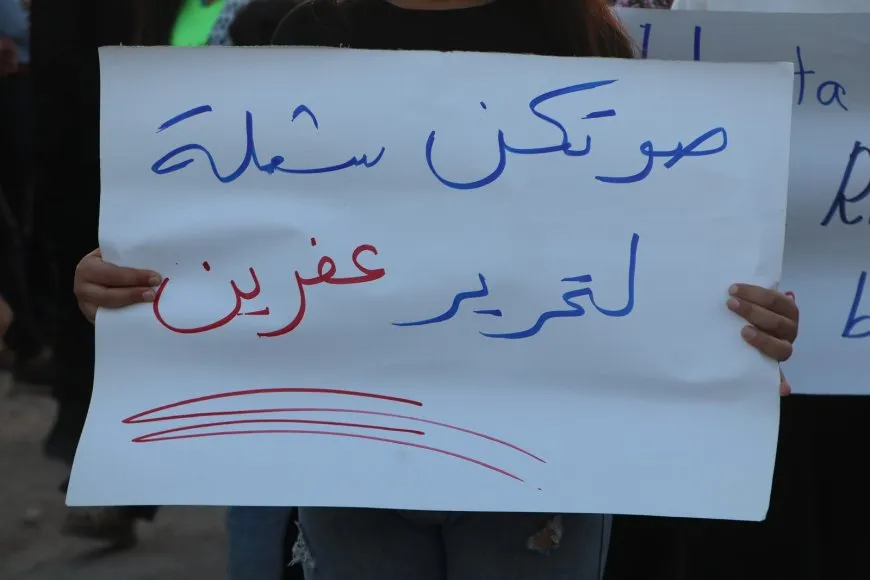 صوتكن شعلة
لتحرير عفرين